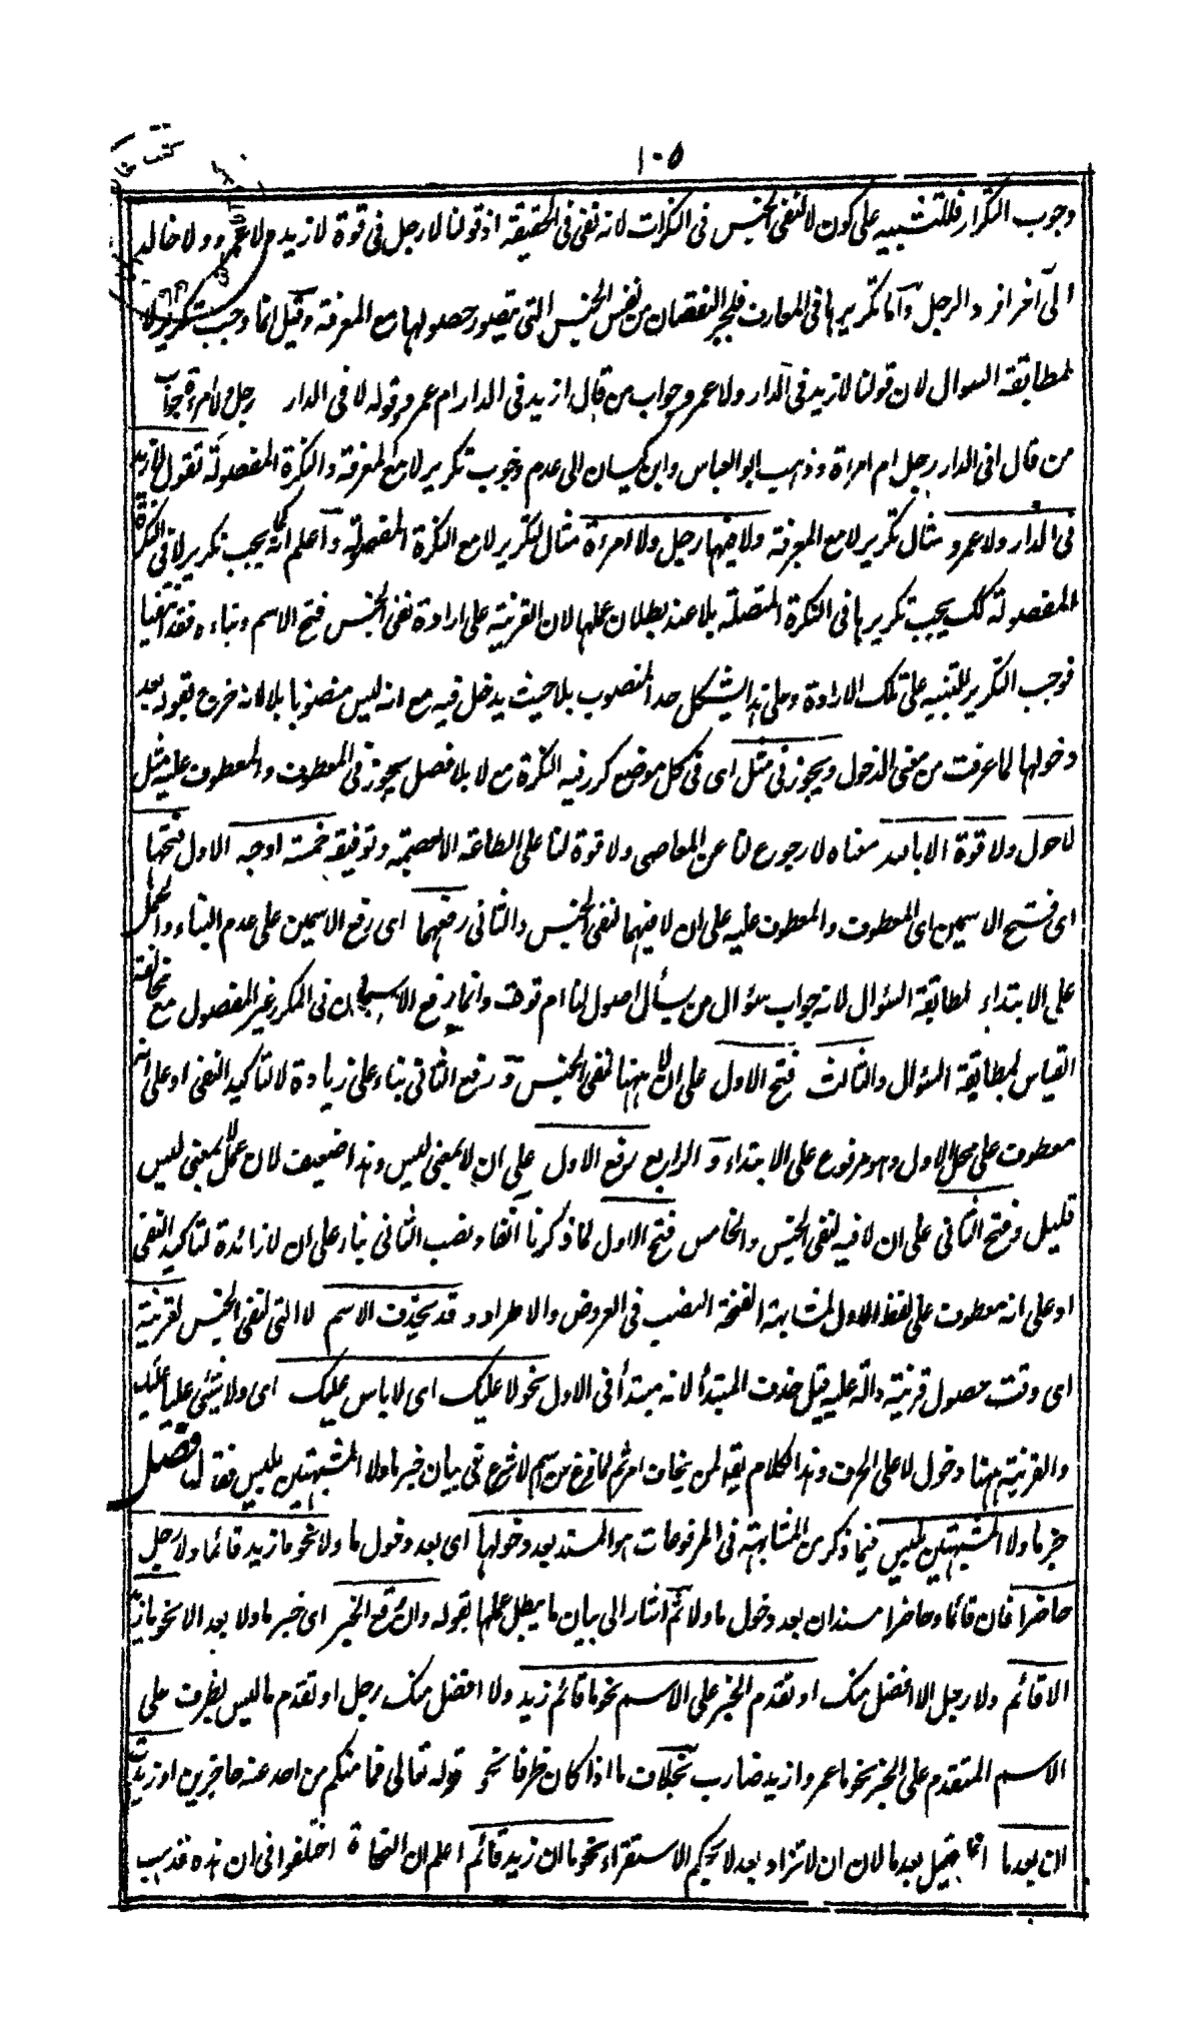 ١٠٥
وجوب التكرار فللتنبيه على كون لا لنفى الجنس فى النكرات لانه نفى فى الحقيقة اذ قولنا لا رجل فى قوة لا زيد و لا عمرو ولا خالد
الى آخر افراد الرجل وآما تكريرها فى المعارف فلجبر النقصان من نفس الجنس التى يتصور حصولها مع المعرفة وقيل انما وجب تكرير لا
لمطابقة السوال لان قولنا لا زيد فى الدار ولا عمرو جواب من قال ازيد فى الدار ام عمرو وقوله لا فى الدار رجل ولا امرءة جواب
من قال افى الدار رجل ام امراة وذهب ابو العباس وابن كيسان الى عدم وجوب تكرير لا مع المعرفة والنكرة المفصولة نقول لا زيد
فى الدار ولا عمرو مثال تكرير لا مع المعرفة ولا فيها رجل ولا امرءة مثال لتكرير لا مع النكرة المفصولة وآعلم انه كما يجب تكرير لا فى النكرة
المفصولة كك يجب تكريرها فى النكرة المتصلة بلا عند بطلان عملها لان القرنية على ارادة نفى الجنس فتح الاسم وبناءه فقد انتفيا
فوجب التكرير للتنبيه على تلك الارادة وعلى هذا يشكل حد المنصوب بلا حيث يدخل فيه مع انه ليس منصوبا بلا لانه خرج بقوله بعد
دخولها لما عرفت من معنى الدخول ويجوز فى مثل اى فى كل موضع كرر فيه النكرة مع لا بلا فصل يجوز فى المعطوف والمعطوف عليه مثل
لا حول ولا قوة الا بالله معناه لا رجوع لنا عن المعاصى ولا قوة لنا على الطاعة الا بعصمته وتوفيقه خمسة اوجه الاول فتحها
اى فتح الاسمين اى المعطوف والمعطوف عليه على ان لا فيهما لنفى الجنس والثانى رفعهما اى رفع الاسمين على عدم البناء والحمل
على الابتداء لمطابقة السؤال لانه جواب سؤال من سأل احول لنا ام قوة وانما رفع الاسمان فى المكرر غير المفصول مع مخالفته
القياس لمطابقة السؤال والثالث فتح الاول على ان لا ههنا لنفى الجنس وّ رفع الثانى بناء على زيادة لا لتاكيد النفى او على انه
معطوف على محل الاول وهو مرفوع على الابتداء وّ الرابع رفع الاول على ان لا بمعنى ليس وهذا ضعيف لان عمل لا بمعنى ليس
قليل وفتح الثانى على ان لا فيه لنفى الجنس والخامس فتح الاول لما ذكرنا آنفا ونصب الثانى بناء على ان لا زائدة لتاكيد النفى
او على انه معطوف على لفظ الاول لمشابهة الفتحة النصب فى العروض والاطراد وقد يحذف الاسم لا التى لنفى الجنس لقرنية
اى وقت حصول قرنية دالة عليه قيل حذف المبتدأ لانه مبتدأ فى الاول نحو لا عليك اى لا باس عليك اى ولا شئى عليك
والقرنية ههنا دخول لا على الحرف وهذا الكلام يقال لمن يخاف امر ثم لما فرغ من اسم لا شرع فى بيان خبر ما ولا المشبهتين بليس فقال فصل
خبر ما ولا المشبهتين بليس فيما ذكر من المشابهة فى المرفوعات هو المسند بعد دخولها اى بعد دخول ما ولا نحو ما زيد قائما ولا رجل
حاضرا فان قائما وحاضرا مسندان بعد دخول ما ولا ثم اشار الى بيان ما يبطل عملها بقوله وان وقع الخبر اى خبر ما ولا بعد الا نحو ما زيد
الا قائم ولا رجل الا افضل منك او تقدم الخبر على الاسم نحو ما قائم زيد ولا افضل منك رجل او تقدم ما ليس بظرف على
الاسم المتقدم على الخبر نحو ما عمروا زيد ضارب بخلاف ما اذا كان ظرفا نحو قوله تعالى فما منكم من احد عنه حاجزين او زيدت
ان بعد ما انما بعد ما لان ان لا تزاد بعد لا بحكم الاستقراء نحو ما ان زيد قائم اعلم ان النحاة اختلفوا فى ان هذه فذهب